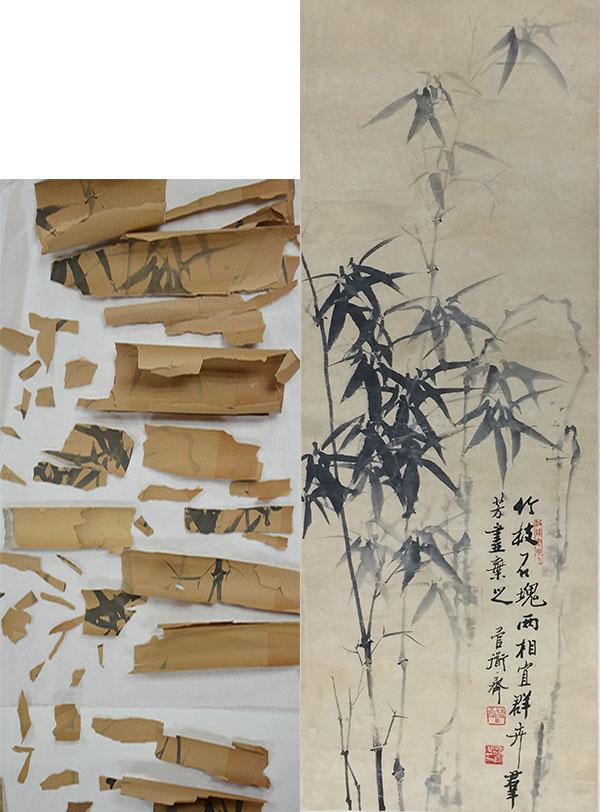 竹枝石塊兩相宜群卉羣
芳盡棄之